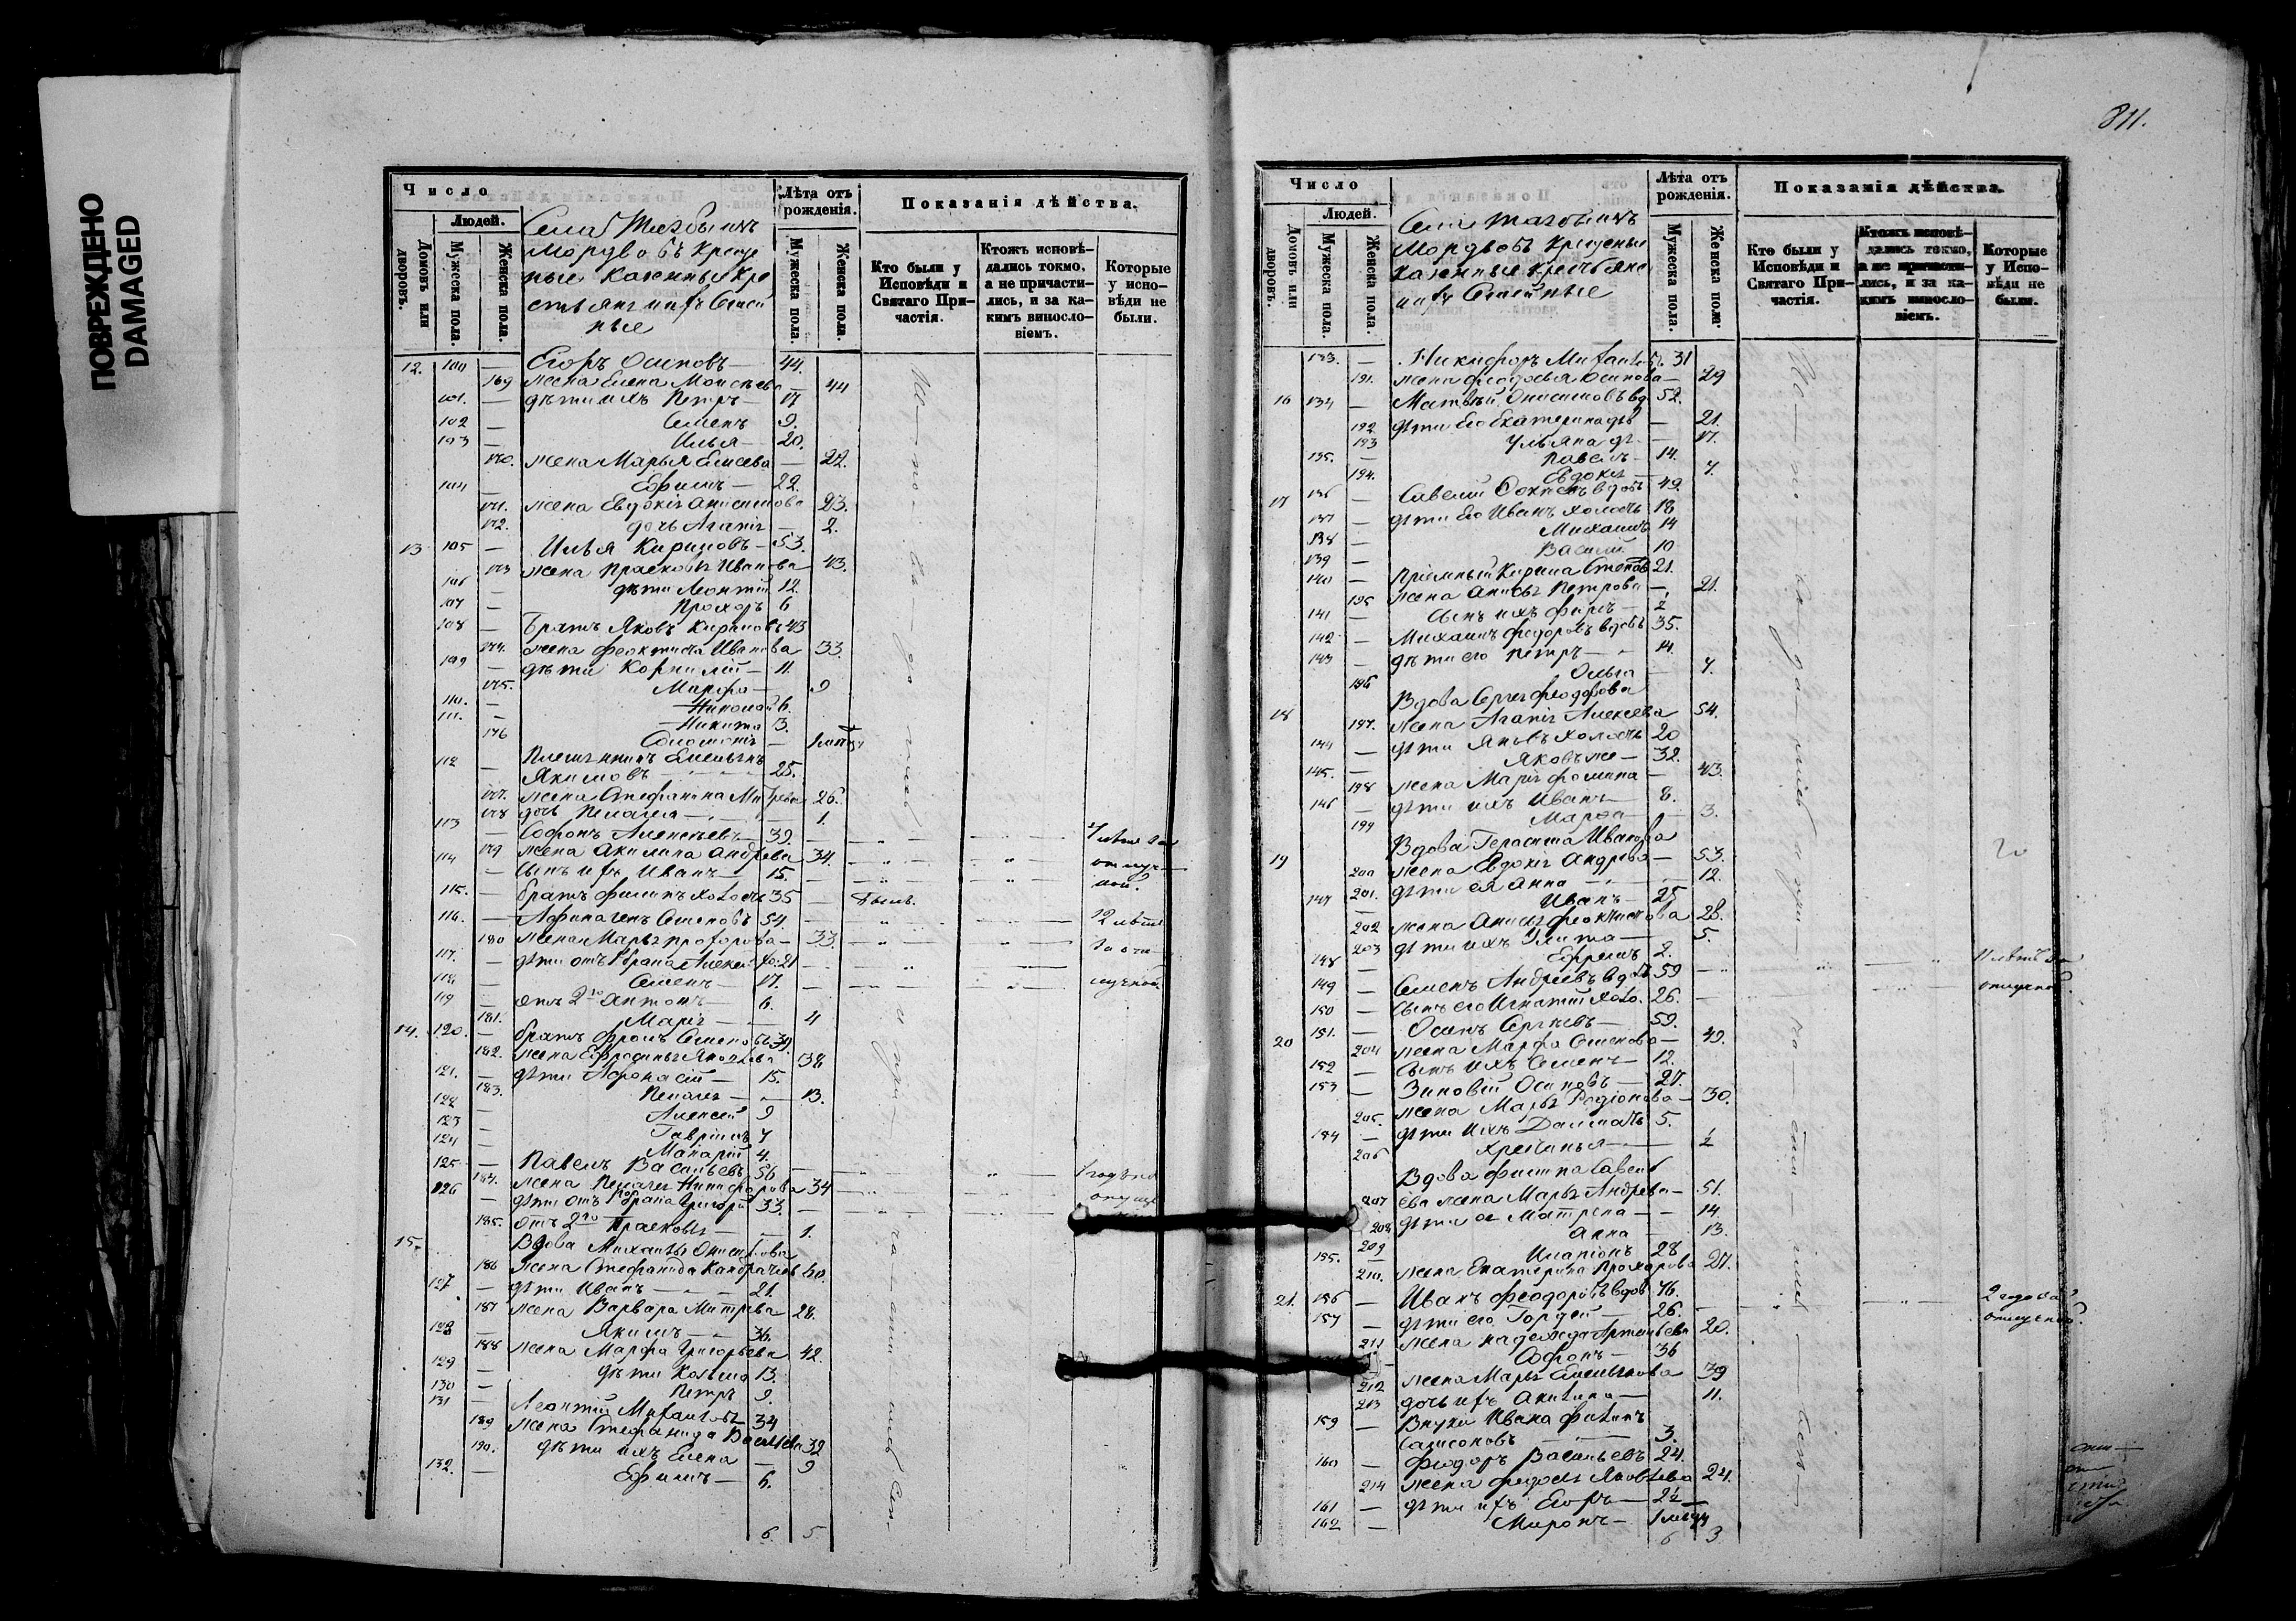 ПОВРЕЖДЕНО
DAMAGED
Число
Людей.
Домовъ или дворовъ.
Мужеска пола.
Женска пола.
Села
Мордвовъ Креще
ные Казенные Кре
стьяне и ихъ Семей
ные
Лѣта отъ рожденія.
Мужеска пола.
Женска пола.
Показанія дѣйства.
Кто были у Исповѣди и Святаго При-
частія.
Ктожъ исповѣ-
дались токмо, а не причасти-
лись, и за ка-
кимъ винословіемъ.
Которые у испо-
вѣди не были.
12. 100 — Егоръ Осиповъ — 44.
169 жена Елена Моисеева — 44
101. — дѣти ихъ Петръ — 17
102 — Семенъ 9.
103 — Илья — 20.
170. жена Марья Елисева — 22.
104 — Ефимъ — 22.
171. жена Евдокія Анисимова 23.
172. дочь Агапія — 2.
13 105 — Илья Кириловъ — 53.
173 жена Прасковья Иванова 43.
106 — дѣти Леонтій 12.
107 — Прохоръ 6
108 — Братъ Яковъ Кириловъ 43
174. жена Феоктиста Иванова 33.
109 — дѣти Корнилій — 11.
175. Марфа — 9
110. — Николай 6.
111. — Никита 3.
176 Соломонія —
112 — Племянникъ Емельянъ
Якимовъ 25.
177. жена Стефанида 26.
178 дочь Пелагея — 1.
113 — Софронъ Алексѣевъ — 39.
179 жена Акилина Андреева 34.
114 — сынъ ихъ Иванъ — 15.
115. — братъ Филипъ холостъ 35 — былъ.
116. — Афиногенъ Семеновъ 54. 12 лѣтъ
180 жена Марья Прохорова — 33.
117. — дѣти отъ 1 брака Алексей хо. 21
118 — Семенъ — 17.
119 — отъ 2го Антонъ — 6.
181. Марія — 4
14. 120. — братъ Фролъ Семеновъ 39.
182. жена Ефросинья Яковлева 38
121. — дѣти Афонасій — 15.
183. Пелагея — 13.
122 — Алексей 9
123 — Гавріилъ 7
124 — Макарій 4.
125 — Павелъ Васильевъ 56
184. жена Пелагея Никифорова 34
126 — дѣти отъ 1го брака Григорій 33.
185. отъ 2го Прасковья — 1.
15. Вдова Михаила Онисимова
186 жена Стефанида 60.
127 — дѣти Иванъ — 21.
187 жена Варвара Митрева 28.
128 — Якимъ — 36.
188 жена Марфа Григорьева 42.
129 — дѣти Козьма 13.
130 — Петръ 9.
131 — Леонтій Михайловъ 34
189 жена Стефанида Васильева 32
190. дѣти ихъ Елена — 9
132. — Ефимъ — 6.
6 5
811.
Число
Людей.
Домовъ или дворовъ.
Мужеска пола.
Женска пола.
Села
Мордвовъ Крещеные
казенные крестьяне
и ихъ Семейные
Лѣта отъ рожденія.
Мужеска пола.
Женска пола.
Показанія дѣйства.
Кто были у Исповѣди и Святаго При-
частія.
Ктожъ исповѣ-
дались токмо, а не причасти-
лись, и за ка-
кимъ винословіемъ.
Которые у Испо-
вѣди не были.
133. — Никифоръ Михайловъ 31
191. жена Феодосья Осипова — 29
16 134 — Матвѣй Онисимовъ вд. 52.
192 дѣти его Екатерина дѣв — 21.
193 Ульяна дѣ. — 17.
135. — Павелъ — 14.
194. Евдокія — 7.
17 136 — Савелій вдовъ 49.
137 — дѣти его Иванъ холостъ 18
138 — Михаилъ 14
139 — Василій 10
140 — Пріемный Кирила 21.
195 жена Анисья Петрова — 21.
141 — сынъ ихъ Фирсъ — 2
142 — Михаилъ Федоровъ вдовъ 35.
143 — дѣти его Петръ — 14.
196 Ольга — 7.
Вдова Сергея Феодорова
18 197. жена Агапія Алексеева 54.
144 — дѣти Яковъ холостъ 20
145. — Яковъ же — 32.
198 жена Марія Фомина — 43.
146 — дѣти ихъ Иванъ — 8.
199 Марфа — 3.
Вдова Герасима Иванова
19 200 жена Евдокія Андреева — 53.
201. дѣти ея Анна — 12.
147 — Иванъ — 25
202 жена Анисья Феоктистова 28.
203 дѣти ихъ Улита — 5.
148 — Ефремъ 2.
149 — Семенъ Андреевъ вдовъ 59 — 11 лѣтъ за
150 — сынъ его Игнатій холо. 26. — отлучкой.
20 151. — Осипъ Сергѣевъ — 59.
204 жена Марфа Семенова — 49.
152 — сынъ ихъ Семенъ — 12.
153 — Зиновій Осиповъ — 27.
205. жена Марья Родіонова — 30.
154 — дѣти ихъ Далматъ 5.
206 Хрестинья — ½
Вдова Филипа Савель
207 ева жена Марья Андреева — 51.
208 дѣти ея Матрена — 14.
209 Анна — 13.
155. Иларіонъ 28
210. жена Екатерина Прохорова 27.
21. 156 — Иванъ Феодоровъ вдов. 76. 2 года за
157 — дѣти его Гордей — 26. отлучкой.
211 жена Надежда Артемьева 20.
Софронъ — 36
212 жена Марья Емельянова 39
213 дочь ихъ Акилина — 11.
159 — Внукъ Ивана Филипъ
Самсоновъ — 3.
160 — Федоръ Васильевъ 24.
214 жена Федосья Яковлева 24.
161 — дѣти ихъ Егоръ — 2½
162 — Миронъ —
6 3